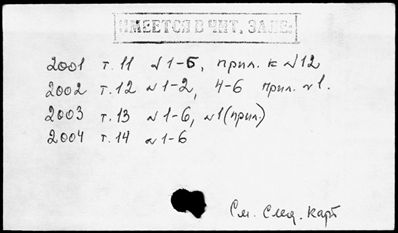 ИМЕЕТСЯ В ЧИТ. ЗАЛЕ
2001 т.11 №1-6, прил. к №12
2002 т.12 №1-2, 4-6 прил. №1.
2003 т.13 №1-6, №1(прил.)
2004 т.14 №1-6
См. след. карт